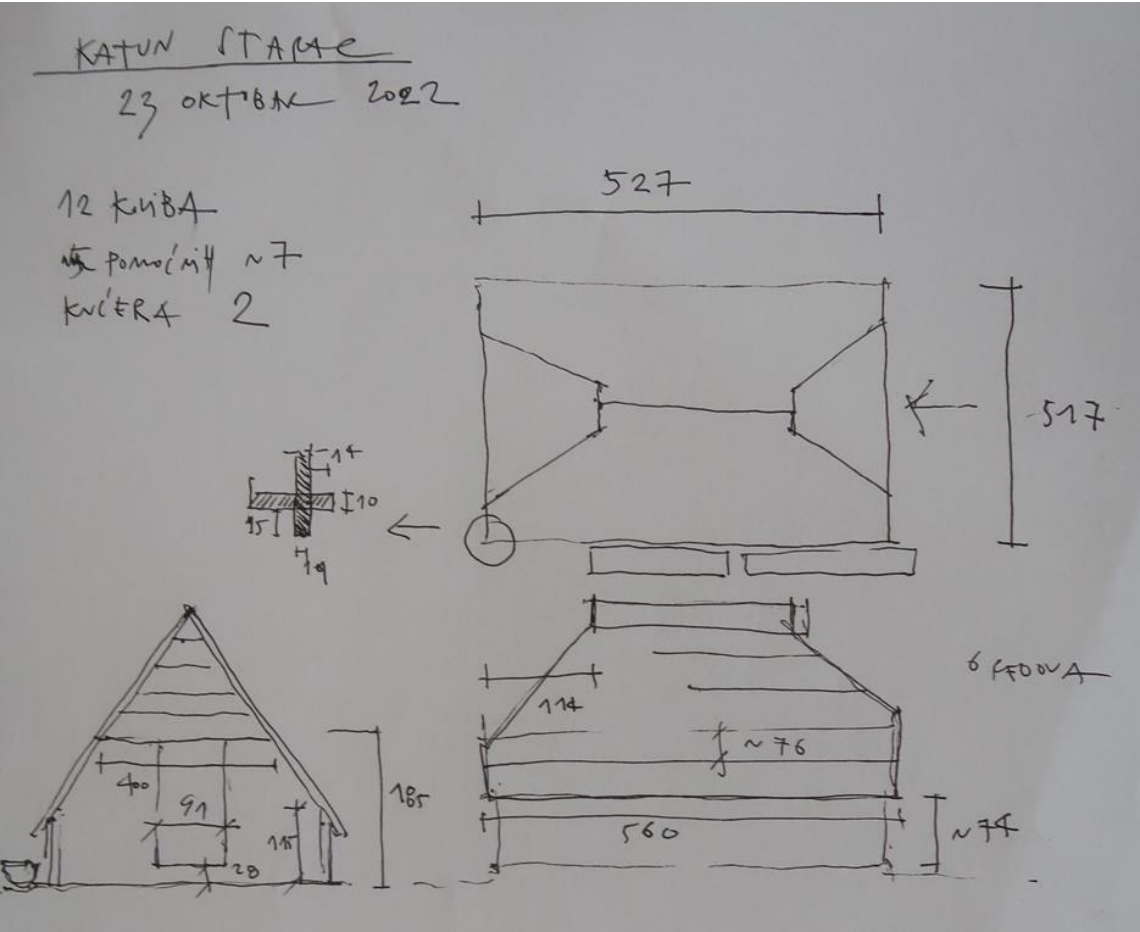 KATUN STARAC
23 OKTOBAR 2022
12 KOLIBA
POMOĆNIH ~7
KUĆERA 2
527
517
14
10
15
19
6 REDOVA
114
~76
400
91
185
115
20
560
~74